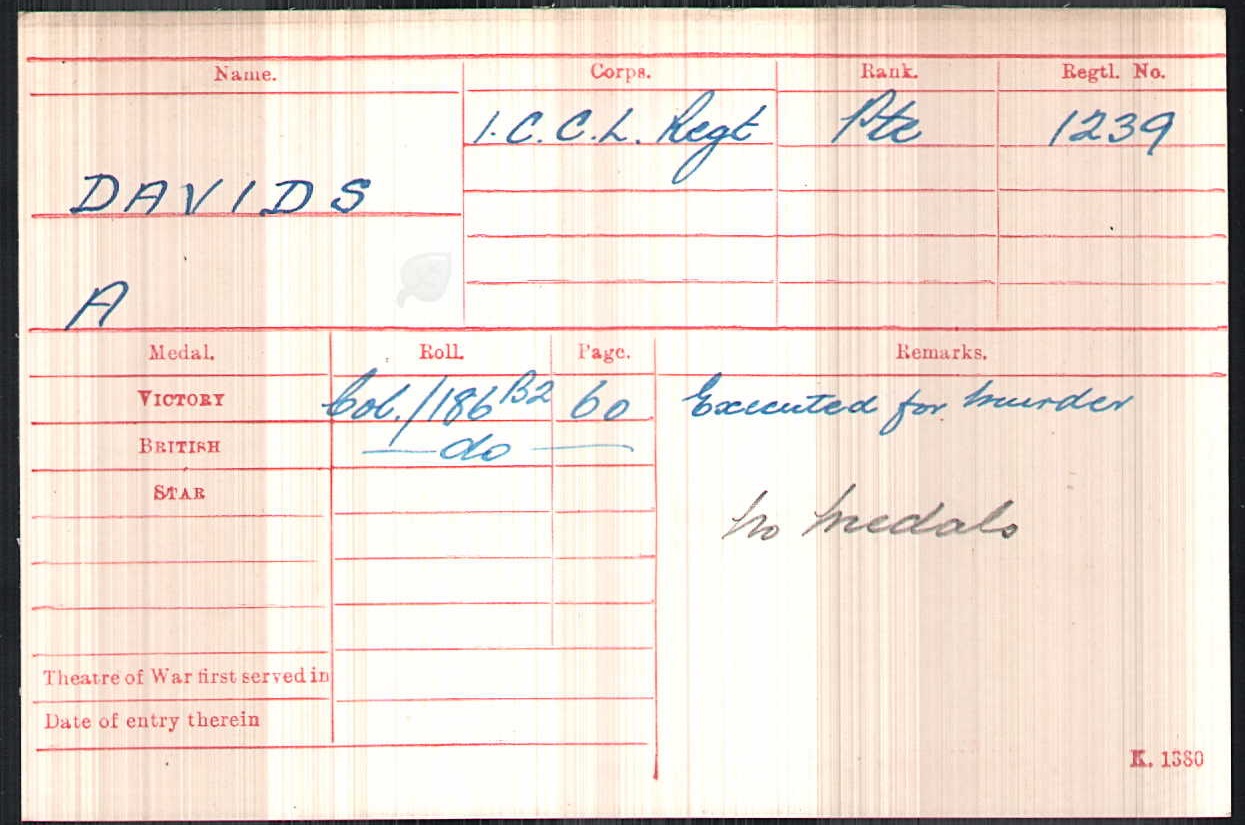 Name. Corps. Rank. Regtl. No.
1.C.C.L. Regt Pte 1239
DAVIDS
A
Medal. Roll. Page. Remarks.
VICTORY Col./186 B2 60 Executed for murder
BRITISH —do—
STAR
No medals
Theatre of War first served in
Date of entry therein
K. 1380